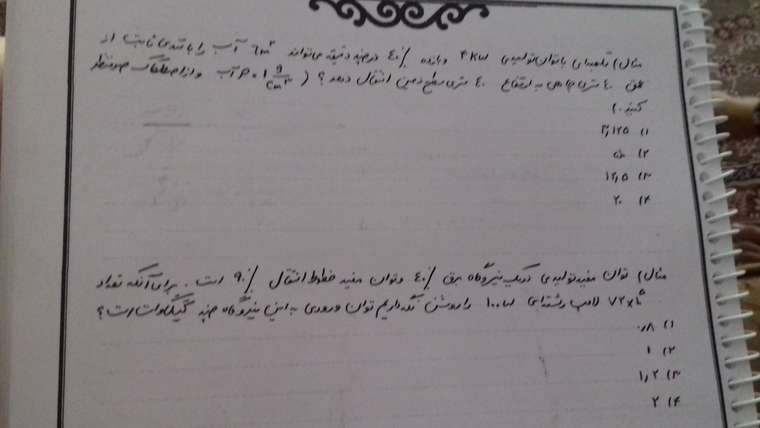 مثال) تلمبه‌ای با توان تولیدی 4kw و بازده ٪۴۰ در چند دقیقه می‌تواند 6m³ آب را با تندی ثابت از
عمق ۴۰ متری چاهی به ارتفاع ۴۰ متری سطح زمین انتقال دهد؟ (ρآب = 1 g/cm³ و از اصطکاک صرفنظر
کنید.)
۱) ۳,۱۲۵
۲) ۵۰
۳) ۱۲,۵
۴) ۲۰
مثال) توان مفید تولیدی در یک نیروگاه برق ٪۴۰ و توان مفید خطوط انتقال ٪۹۰ است. برای آنکه تعداد
۷۲×۱۰⁵ لامپ رشته‌ای ۱۰۰w را روشن نگه داریم توان ورودی به این نیروگاه چند گیگاوات است؟
۱) ۰,۸
۲) ۱
۳) ۱,۲
۴) ۲